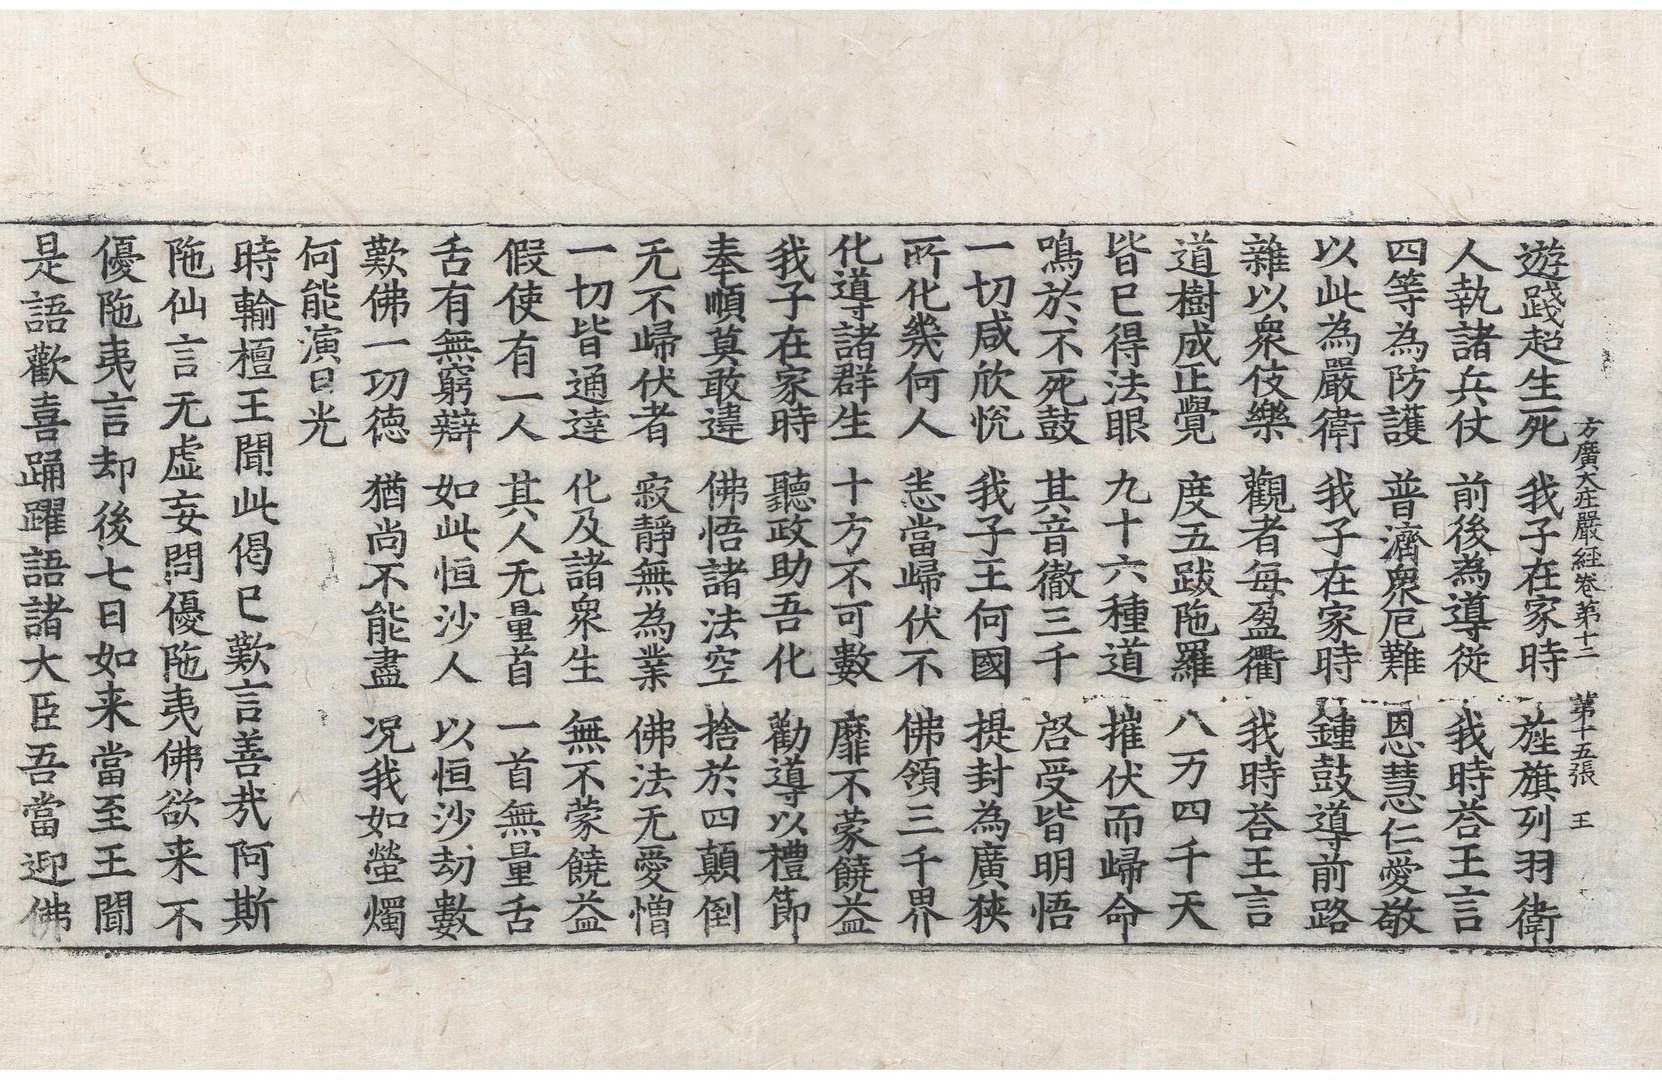 方廣大莊嚴經卷第十二 第十五張 王
遊踐超生死 我子在家時 旌旗列羽衛
人執諸兵仗 前後為導從 我時荅王言
四等為防護 普濟衆厄難 恩慧仁愛敬
以此為嚴衛 我子在家時 鍾鼓導前路
雜以衆伎樂 觀者每盈衢 我時荅王言
道樹成正覺 度五跋陁羅 八万四千天
皆已得法眼 九十六種道 摧伏而歸命
鳴於不死鼓 其音徹三千 啓受皆明悟
一切咸欣恱 我子王何國 提封為廣狹
所化幾何人 悉當歸伏不 佛領三千界
化導諸群生 十方不可數 靡不蒙饒益
我子在家時 聽政助吾化 勸導以禮節
奉順莫敢違 佛悟諸法空 捨於四顛倒
无不歸伏者 寂靜無為業 佛法无愛憎
一切皆通達 化及諸衆生 無不蒙饒益
假使有一人 其人无量首 一首無量舌
舌有無窮辯 如此恒沙人 以恒沙劫數
歎佛一功德 猶尚不能盡 况我如螢燭
何能演日光
時輸檀王聞此偈已歎言善㢤阿斯
陁仙言无虛妄問優陁夷佛欲来不
優陁夷言却後七日如来當至王聞
是語歡喜踊躍語諸大臣吾當迎佛